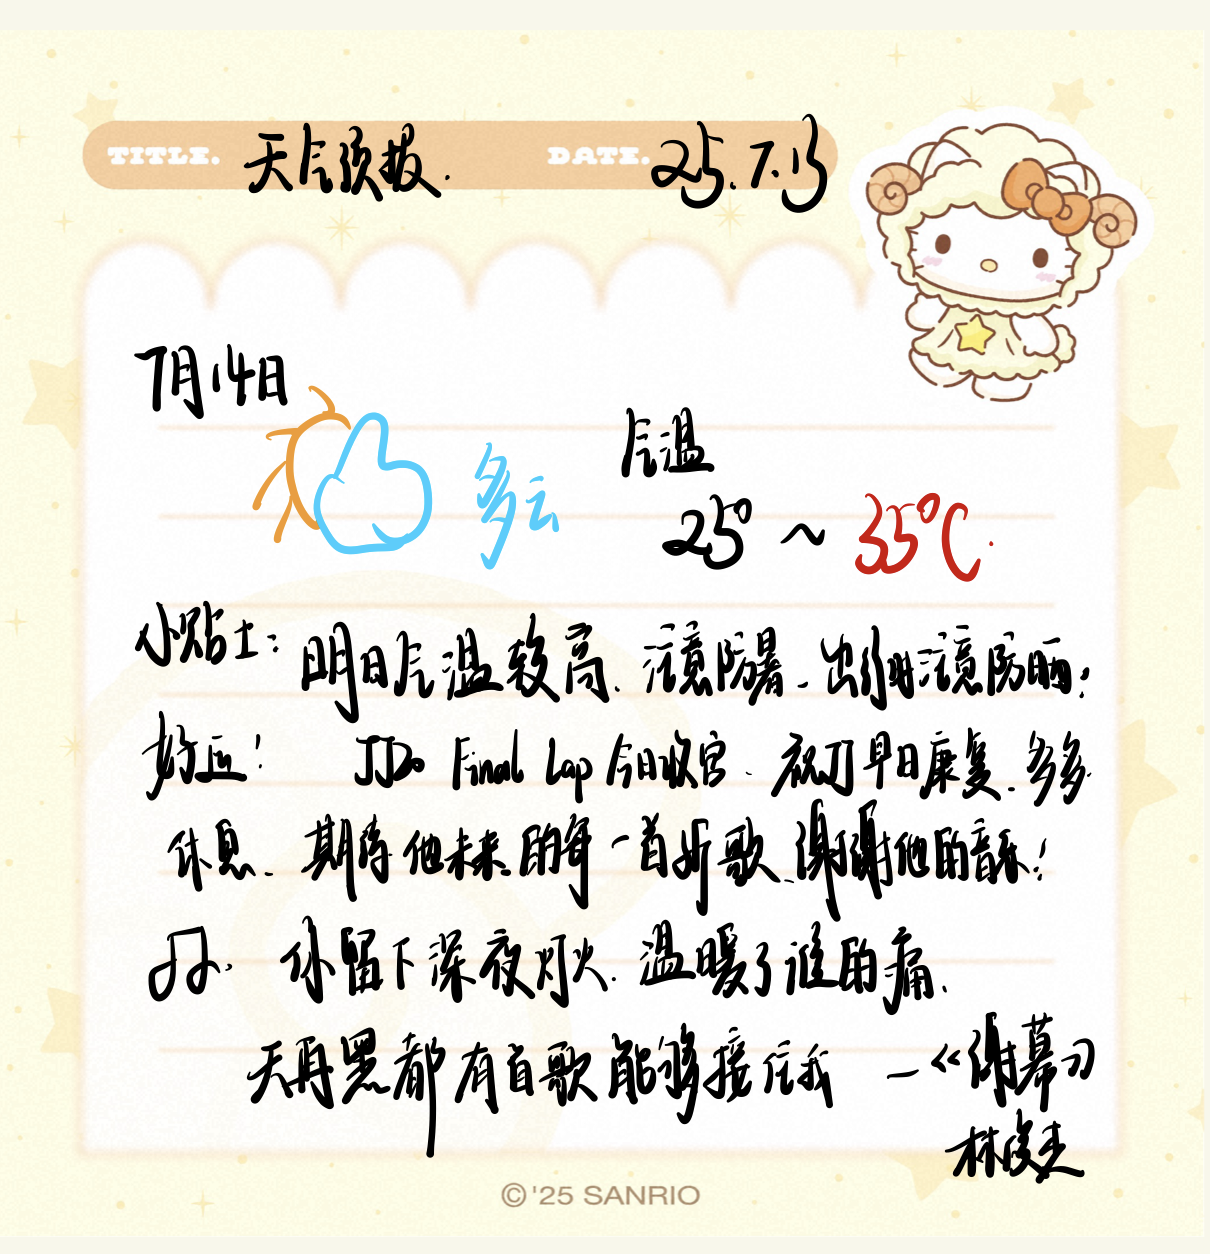 TITLE. 天气预报. DATE. 25.7.13
7月14日
多云 气温
25° ~ 35℃.
小贴士: 明日气温较高、注意防暑、出行时注意防晒!
好运! JJ20 Final Lap 今日收官、祝JJ早日康复、多多
休息、期待他未来的每一首好歌、谢谢他的音乐!
♫. 你留下深夜灯火. 温暖了谁的痛.
天再黑都有首歌能够接住我 —《谢幕》
林俊杰
© '25 SANRIO